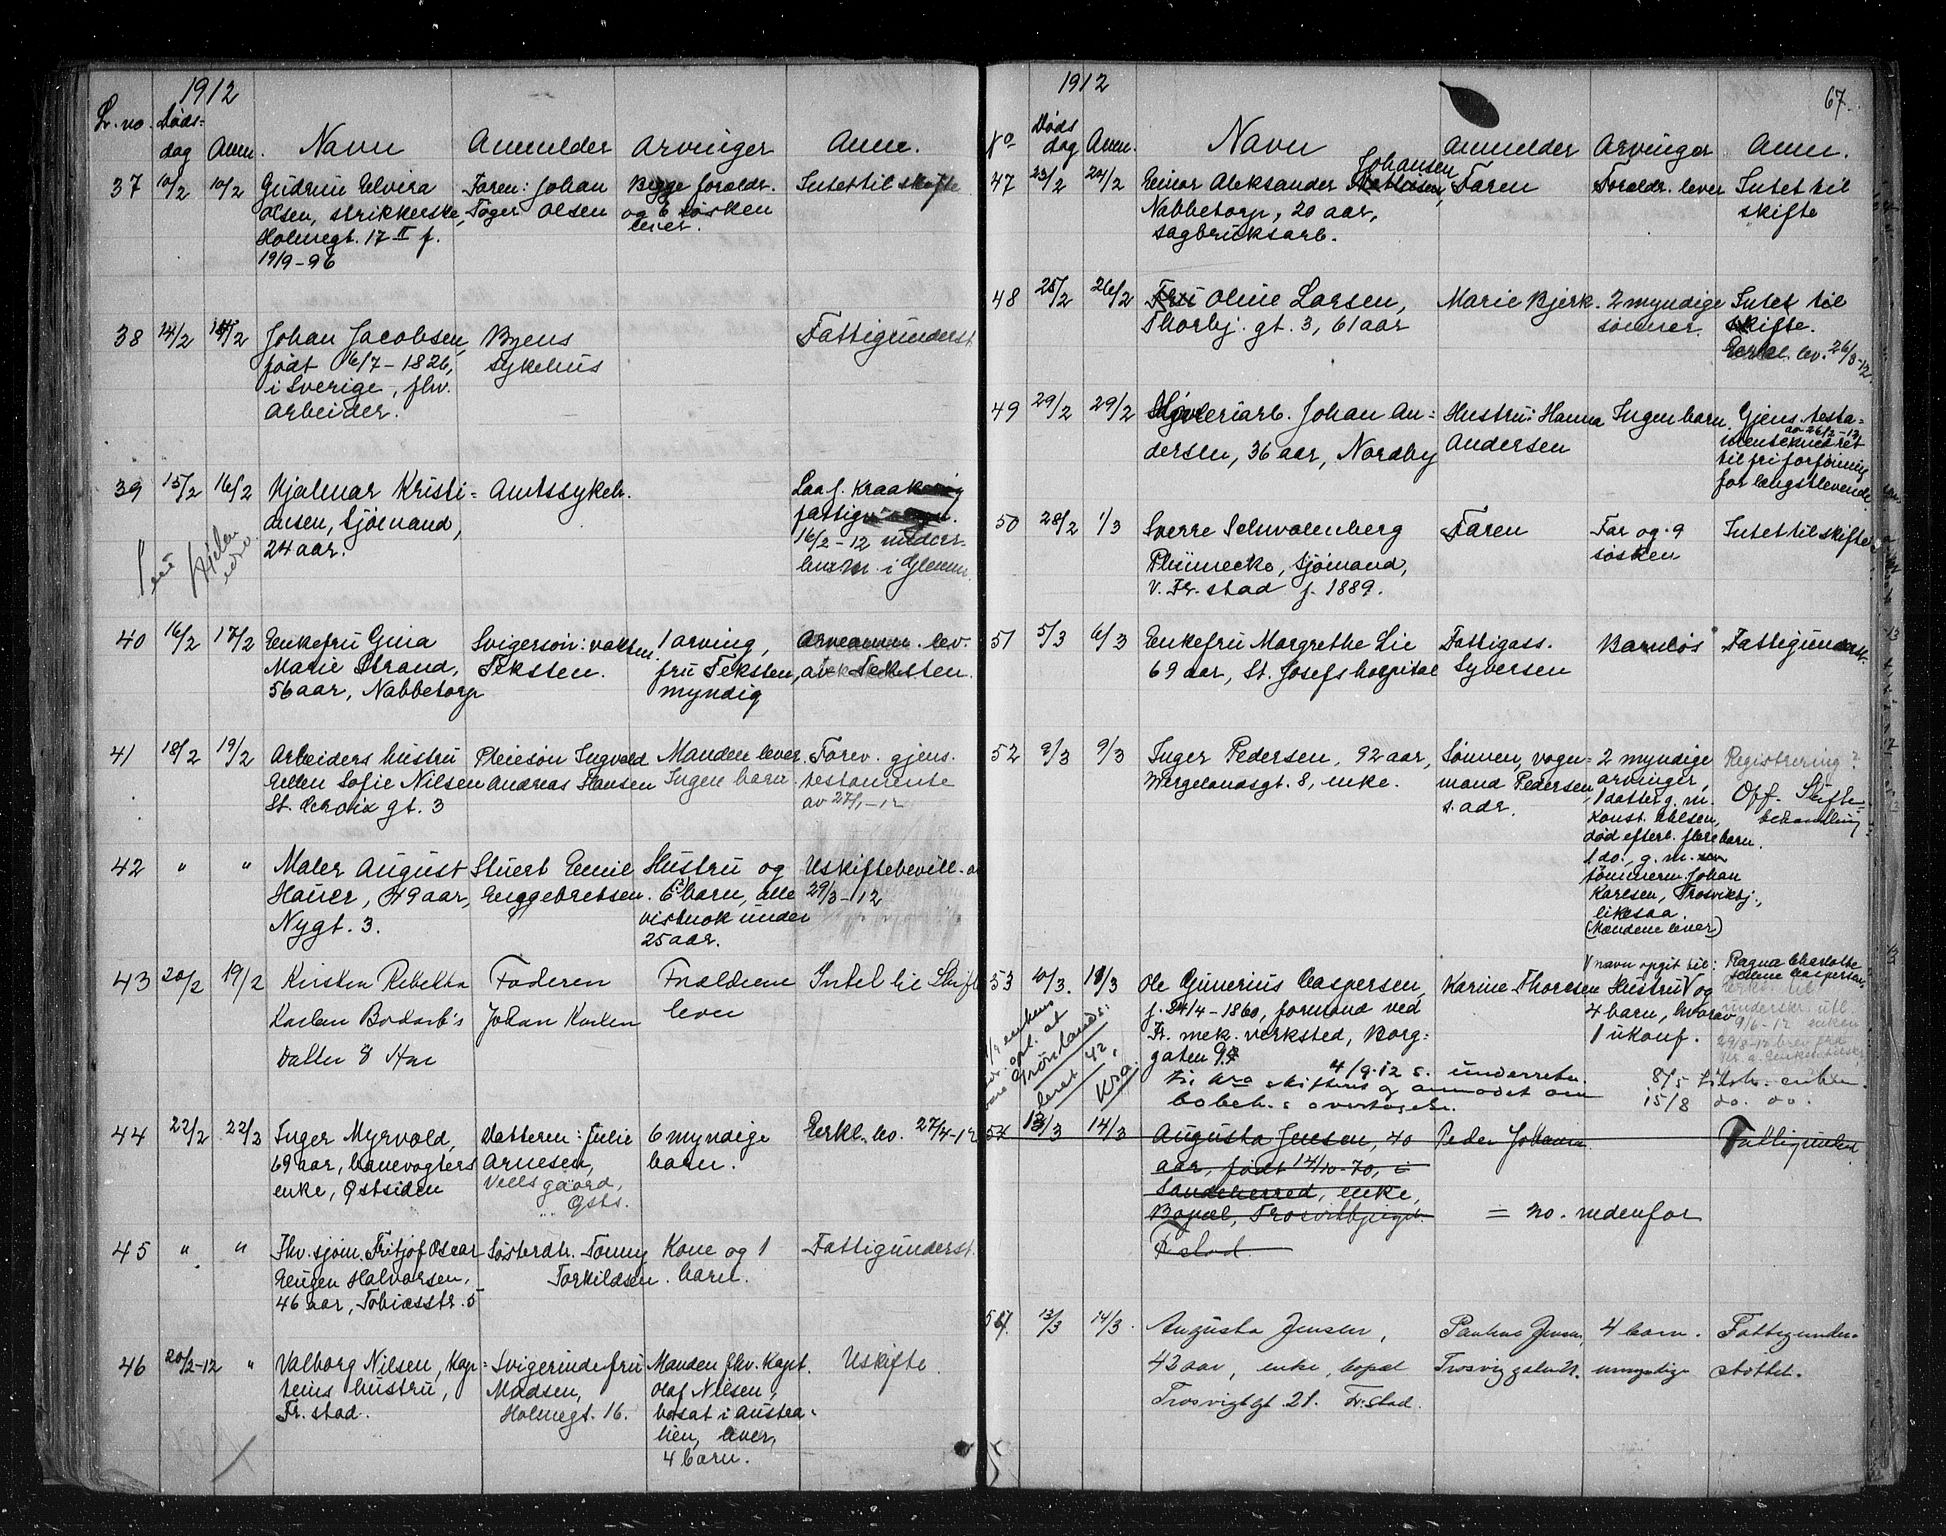 1912
L. no. Døds= dag Anm. Navn Anmelder Arvinger Anm.
37 10/2 10/2 Gudrun Elvira Faren: Johan Begge foreldr. Intet til skifte
Olsen, strikkerske, Tøger Olsen og 6 søsken
Holmegt. 17 II f. lever.
19/9-96
38 14/2 Johan Jacobsen, Byens Fattigunderst.
født 16/7-1826, sykehus
i Sverige, fhv.
arbeider.
39 15/2 16/2 Hjalmar Kristi= Amtssykeh. Laa f.
ansen, sjømand, fattigv.
24 aar. 16/2-12
i Glemm.
40 16/2 17/2 Enkefru Gina Svigersøn: 1 arving, lev.
Marie Strand, Teksten. fru Teksten, av Teksten.
56 aar, Nabbetorp myndig
41 18/2 19/2 Arbeiders hustru Pleiesøn Ingvald Manden lever Forev. gjens.
Ellen Sofie Nilsen Andreas Hansen Ingen barn testamente
St. Croix gt. 3 av 27/1-12
42 " " Maler August Stuert Emil Hustru og Uskiftebevill.
Hauer, 49 aar, Enggebretsen. 6 barn, alle 29/3-12
Nygt. 3. vistnok under
25 aar.
43 20/2 19/2 Kirsten Rebekka Faderen Forældrene Intet til Skifte
Karlen Bodarb's Johan Karlen lever
Datter 8 Aar
44 22/2 22/3 Inger Myrvold, Datteren: Julie 6 myndige Erkl. lev. 27/4-12
69 aar, banevogters Arnesen, barn.
enke, Østsiden gaard,
Østs.
45 " " Fhv. sjøm. Fritjof Oscar Søsterdtr. Tonny Kone og 1 Fattigunderst.
Eugen Halvorsen, Torkildsen. barn.
46 aar, Tobiasstr. 5
46 20/2-12 " Valborg Nilsen, Kap= Svigerinde fru Manden fhv. Kapt. Uskifte.
teins hustru, Madsen, Olaf Nilsen,
Fr.stad. Holmegt. 16. bosat i Austra-
lien, lever,
4 barn.
1912
67.
No Døds dag Anm. Navn Anmelder Arvinger Anm.
47 23/2 24/2 Einar Aleksander Johansen, Faren Foreldr. lever Intet til
Nabbetorp, 20 aar, skifte
sagbruksarb.
48 25/2 26/2 Fru Oline Larsen, Marie Bjerk. 2 myndige Intet til
Thorbj. gt. 3, 61 aar sønner. skifte.
Erkl. lev. 26/3-12.
49 29/2 29/2 Høvleriarb. Johan An= Hustru: Hanna Ingen barn. Gjens. testa=
dersen, 36 aar, Nordby Andersen av 26/2-12
til fri forføining
for længstlevende.
50 28/2 1/3 Sverre Schwalenberg Faren Far og 9 Intet til skifte
Plünnecke, sjømand, søsken
v. Fr.stad f. 1889.
51 5/3 6/3 Enkefru Margrethe Lie Fattigass. Barnløs Fattigunderst.
69 aar, St. Josefs hospital Syversen
52 9/3 9/3 Inger Pedersen, 92 aar, Sønnen, vogn= 2 myndige Registrering?
Wergelandsgt. 8, enke. mand Pedersen arvinger, Off. Skifte=
s. adr. 1 datter g. m. behandling
Konst. Ohlsen,
død efterl. flere barn.
1 do., g. m.
tømmerm. Johan
Karlsen, Trosvikbj.,
likesaa.
(Mændene lever)
V navn opgit til: Ragna Charlotte
53 10/3. 11/3 Ole Gunerius Caspersen, Karine Thoresen Hustru V og
f. 24/4-1860, formand ved 4 barn, hvorav
Fr. mek. verksted, Borg= 1 ukonf.
gaten 9
4/9.12 s. underretn. 8/5 enken.
skifteret og anmodet om 15/8 do. do.
bobeh.s overtagelse.
underskr. utl.
9/6-12 enken
54 13/3 14/3 Augusta Jensen, 40 Peder Johansen Fattigunderst.
aar, født 14/10-70, i
Sandeherred, enke,
Bopæl, Trosvikbjerget = no. nedenfor
Fr.stad.
54. 13/3 14/3. Augusta Jensen, Pauline Jensen, 4 barn. Fattigunder-
43 aar, enke, bopæl Trosvig umyndige støttet.
Trosvigbgt 21. Fr.stad.